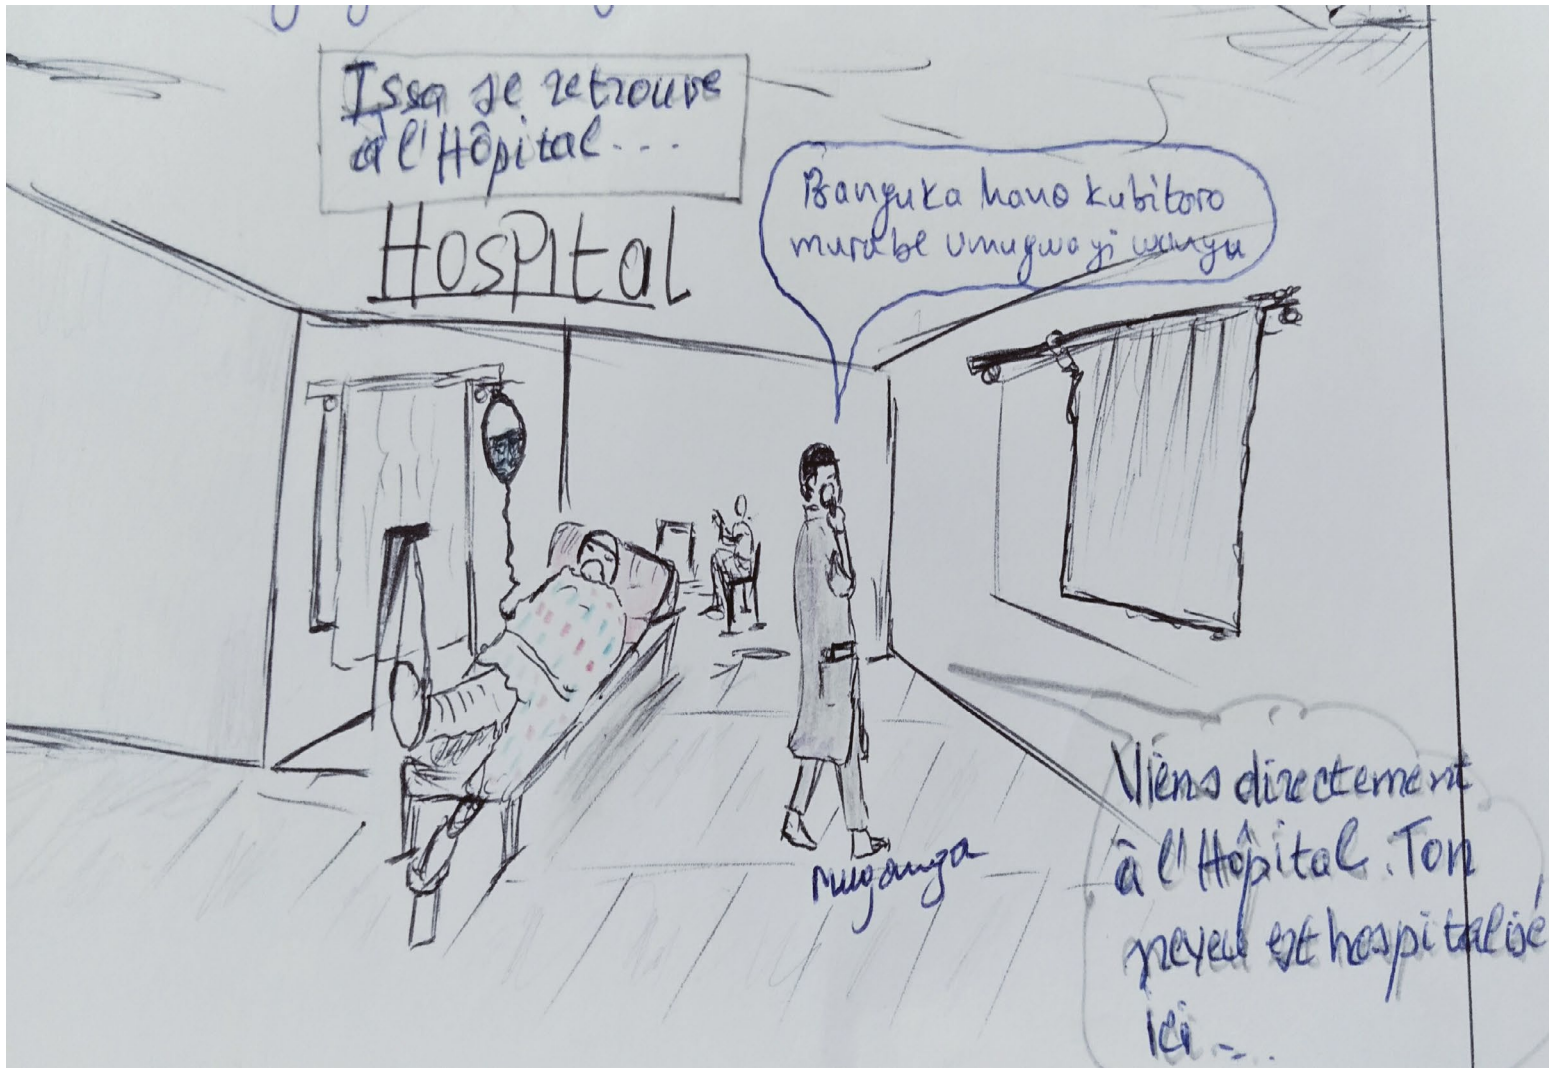 Issa se retrouve
à l'Hôpital...
Hospital
Banguka hano kubitoro
murabe umugwayi wanyu
Muganga
Viens directement
à l'Hôpital. Ton
neveu est hospitalisé
ici...